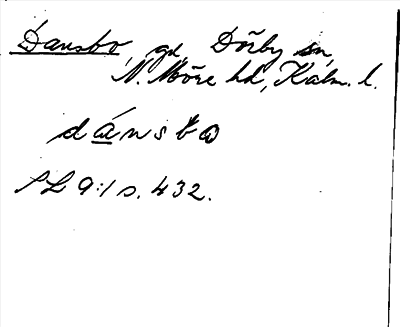 Dansbo, gd, Dörby sn,
N. Möre hd, Kalm. l.
dánsbo
SL 9:1 s. 432.